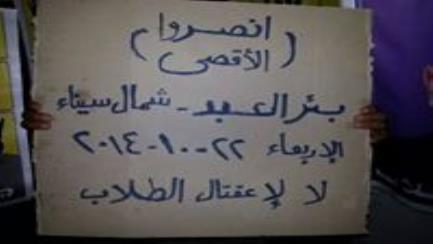 انصروا
(الأقصى)
بئر العبد - شمال سيناء
الاربعاء ٢٢-١٠-٢٠١٤
لا لإعتقال الطلاب